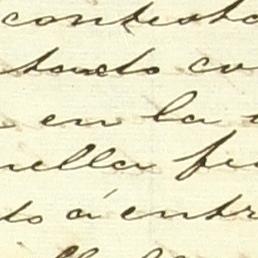 contesta
tanto cu
en la
ella fu
to á entr